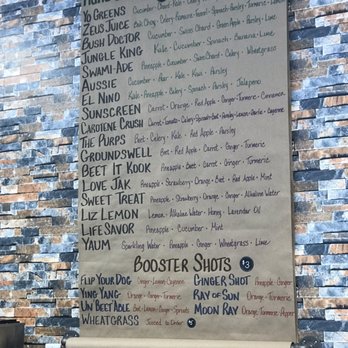 YO GREENS
ZEUS JUICE Bok Choy • Celery • Romaine • Fennel • Spinach • Parsley • Lemon
BUSH DOCTOR Cucumber • Swiss Chard • Green Apple • Parsley • Lime
JUNGLE KING Kale • Cucumber • Spinach • Banana • Lime
SWAMI-ADE Pineapple • Cucumber • Swiss Chard • Celery • Wheatgrass
AUSSIE Cucumber • Pear • Kale • Kiwi • Parsley
EL NINO Kale • Pineapple • Celery • Spinach • Parsley • Jalapeno
SUNSCREEN Carrot • Orange • Red Apple • Ginger • Turmeric • Cinnamon
CAROTENE CRUSH Carrot • Tomato • Celery • Spinach • Beet • Parsley • Lemon • Garlic • Cayenne
THE PURPS Beet • Celery • Kale • Red Apple • Parsley
GROUNDSWELL Beet • Red Apple • Carrot • Ginger • Turmeric
BEET IT KOOK Pineapple • Beet • Carrot • Ginger • Turmeric
LOVE JAK Pineapple • Strawberry • Orange • Beet • Red Apple • Mint
SWEET TREAT Pineapple • Strawberry • Orange • Ginger • Alkaline Water
LIZ LEMON Lemon • Alkaline Water • Honey • Lavender Oil
LIFE SAVOR Pineapple • Cucumber • Mint
YAUM Sparkling Water • Pineapple • Ginger • Wheatgrass • Lime
BOOSTER SHOTS $3
FLIP YOUR DOG Ginger • Lemon • Cayenne
GINGER SHOT Pineapple • Ginger
YING YANG Orange • Ginger • Turmeric
RAY OF SUN Orange • Turmeric
UN BEET ABLE Beet • Lemon • Ginger • Sprouts
MOON RAY Orange • Turmeric • Pepper
WHEATGRASS Juiced to Order